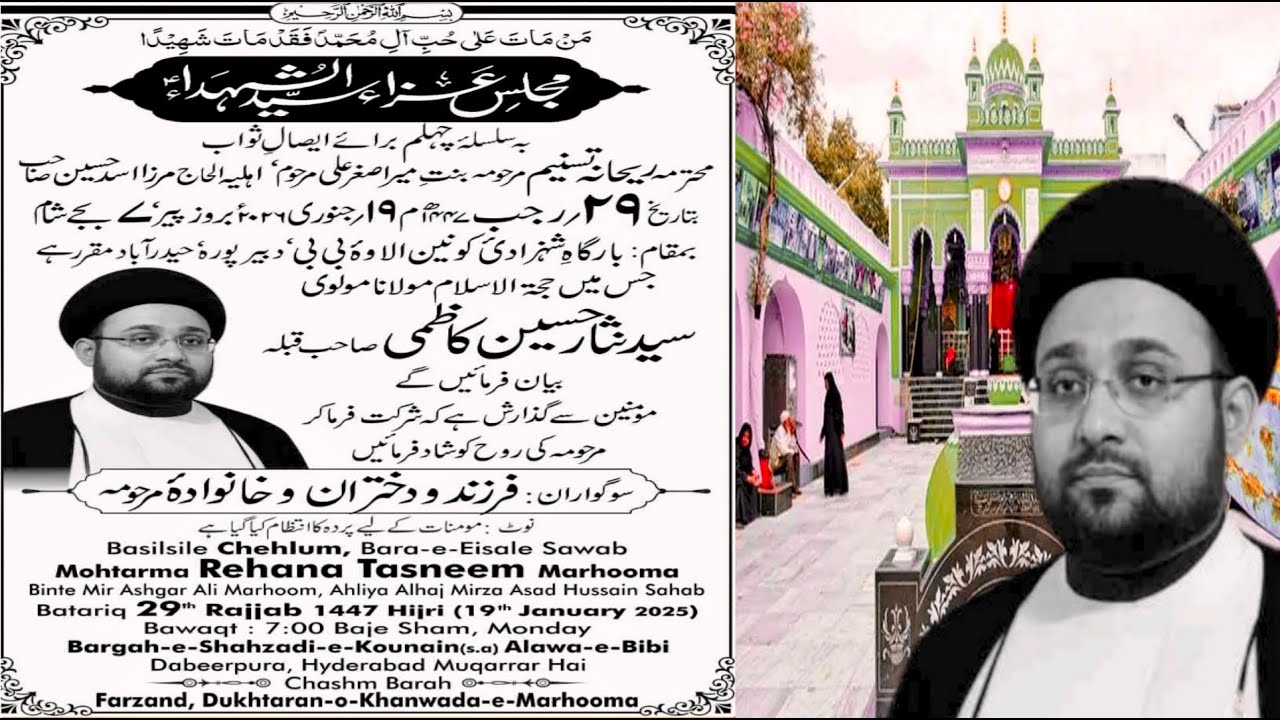 بِسْمِ اللهِ الرَّحْمٰنِ الرَّحِيْمِ
مَنْ مَاتَ عَلیٰ حُبِّ آلِ مُحَمَّدٍ فَقَدْ مَاتَ شَهِيْدًا
مجلسِ عزاء سیّد الشہداءؑ
بہ سلسلۂ چہلم برائے ایصالِ ثواب
محترمہ ریحانہ تسنیم مرحومہ بنتِ میر اصغر علی مرحوم، اہلیہ الحاج مرزا اسد حسین صاحب
بتاریخ ۲۹؍ رجب ۱۴۴۷ھ م ۱۹؍ جنوری ۲۰۲۶ء بروز پیر، ۷ بجے شام
بمقام: بارگاہِ شہزادیٔ کونین الاوۂ بی بی، دبیر پورہ حیدرآباد مقرر ہے
جس میں حجۃ الاسلام مولانا مولوی
سید نثار حسین کاظمی صاحب قبلہ
بیان فرمائیں گے
مؤنین سے گذارش ہے کہ شرکت فرما کر
مرحومہ کی روح کو شاد فرمائیں
سوگواران: فرزند و دختران و خانوادۂ مرحومہ
نوٹ: مومنات کے لیے پردہ کا انتظام کیا گیا ہے
Basilsile Chehlum, Bara-e-Eisale Sawab
Mohtarma Rehana Tasneem Marhooma
Binte Mir Ashgar Ali Marhoom, Ahliya Alhaj Mirza Asad Hussain Sahab
Batariq 29th Rajjab 1447 Hijri (19th January 2025)
Bawaqt : 7:00 Baje Sham, Monday
Bargah-e-Shahzadi-e-Kounain(s.a) Alawa-e-Bibi
Dabeerpura, Hyderabad Muqarrar Hai
Chashm Barah
Farzand, Dukhtaran-o-Khanwada-e-Marhooma